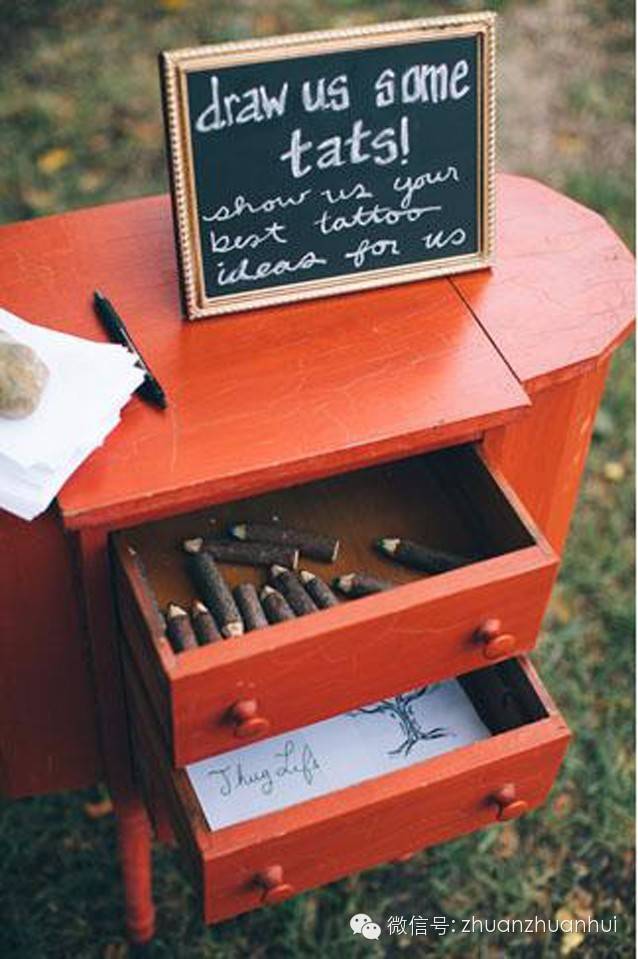 draw us some
tats!
show us your
best tattoo
ideas for us
Thug Life
微信号: zhuanzhuanhui